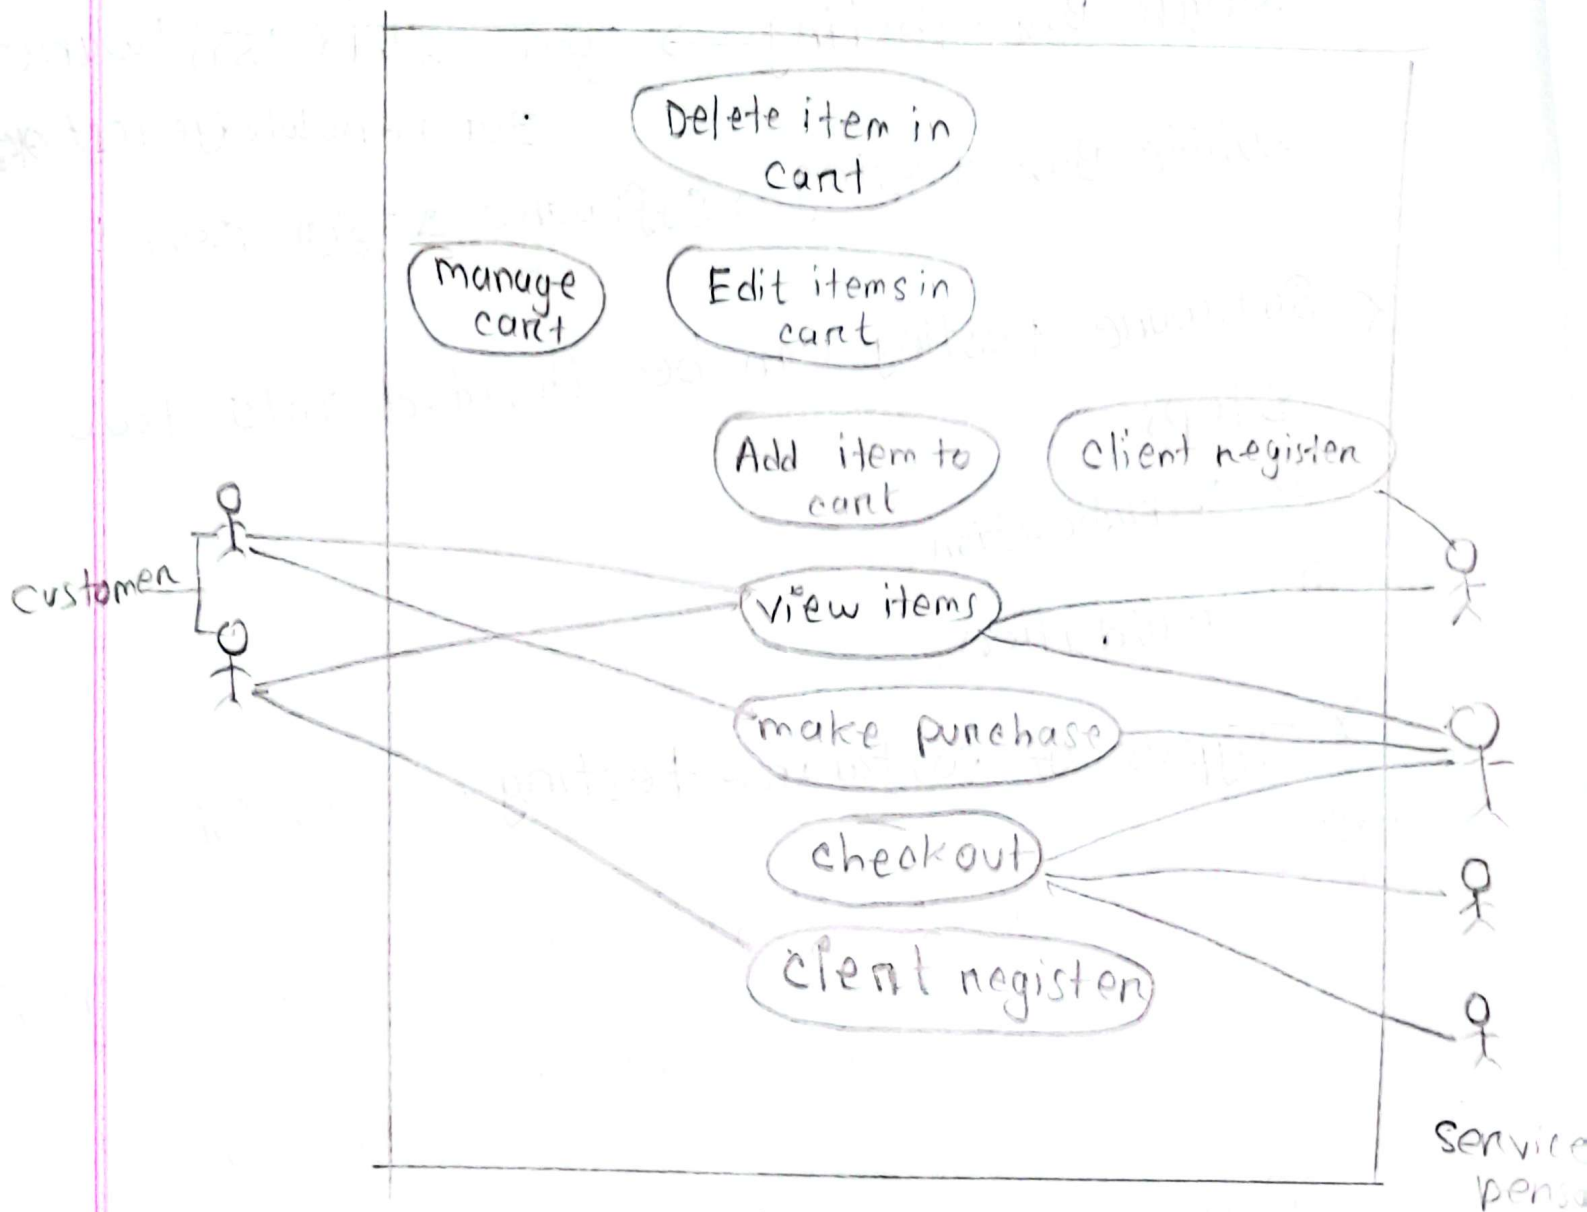 Delete item in
cart
manage
cart
Edit items in
cart
Add item to
cart
client register
customer
view items
make purchase
checkout
client register
service